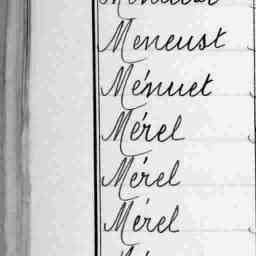 Meneust
Ménuet
Mérel
Mérel
Mérel